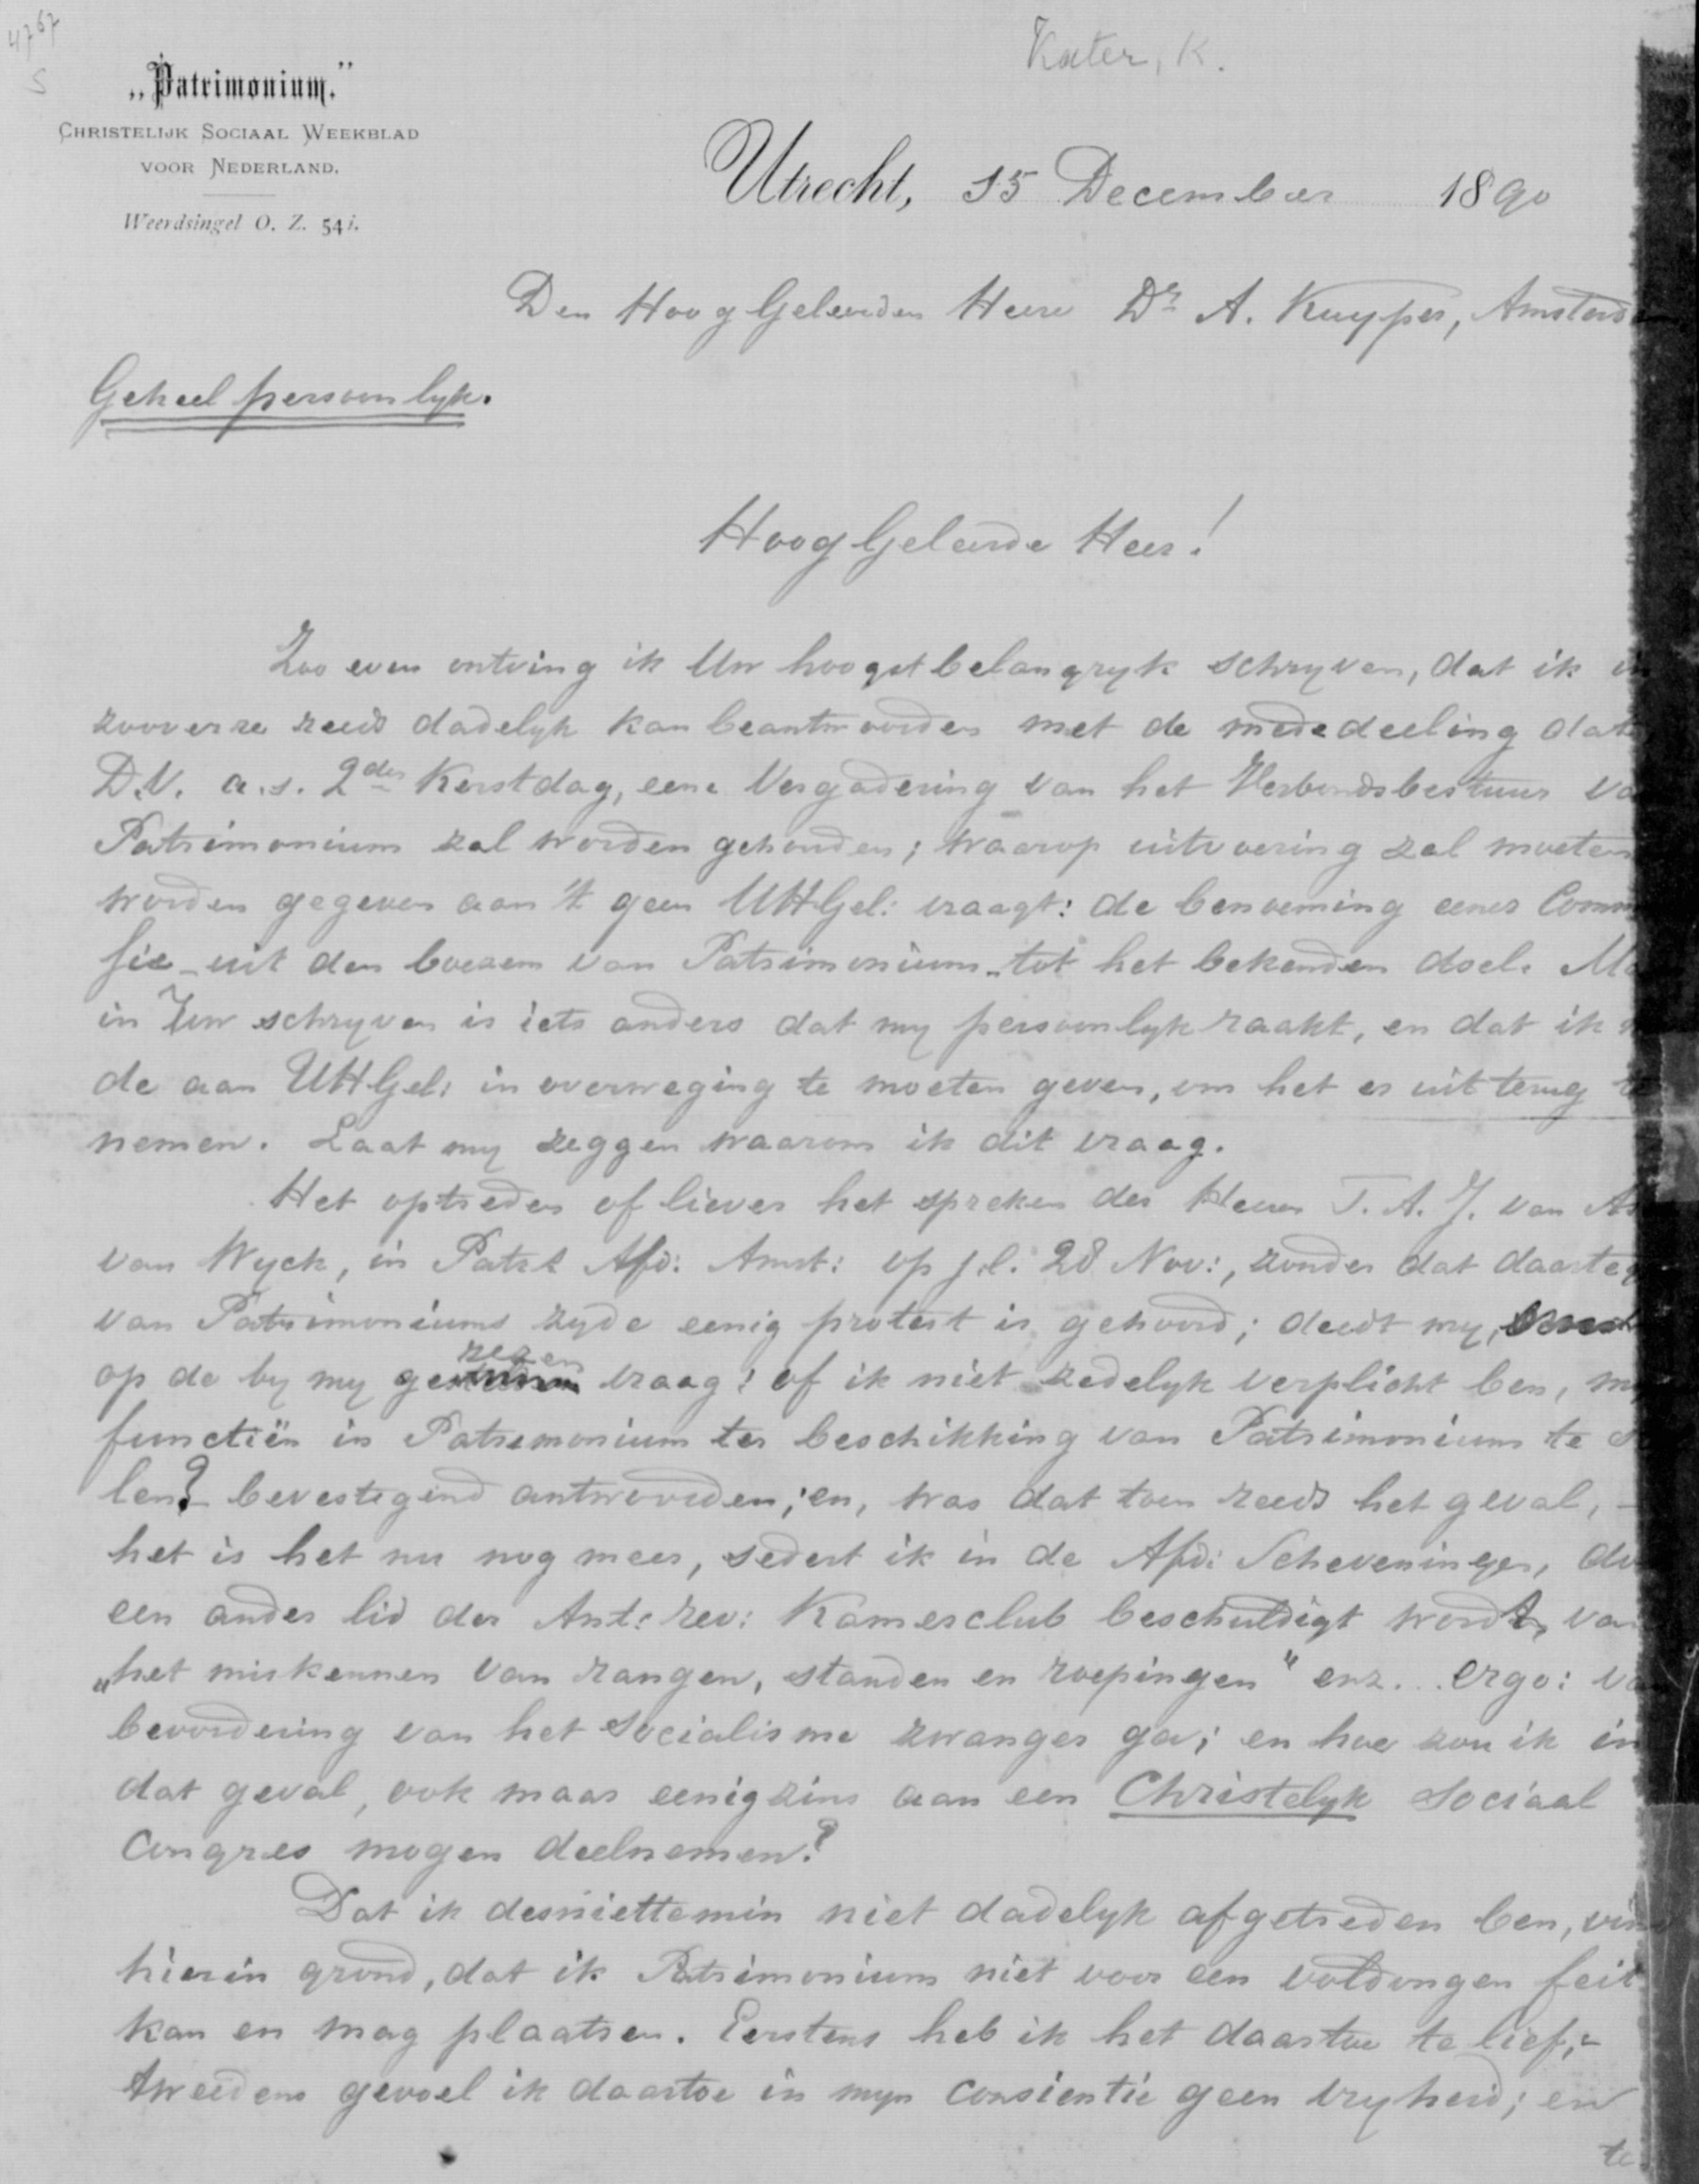 4767
S
Kater, K.
„Patrimonium.”
CHRISTELIJK SOCIAAL WEEKBLAD
VOOR NEDERLAND.
Weerdsingel O. Z. 54i.
Utrecht, 15 December 1890
Den HoogGeleerden Heere Dr A. Kuyper, Amsterd
Geheel persoonlyk.
HoogGeleerde Heer!
Zoo even ontving ik Uw hoogstbelangryk schryven, dat ik in
zooverre reeds dadelyk kan beantwoorden met de mededeeling dat
D.V. a.s. 2den Kerstdag, eene Vergadering van het Verbondsbestuur va
Patrimonium zal worden gehouden; waarop uitvoering zal moeten
worden gegeven aan 't geen UHGel: vraagt: de benoeming eener Comm
sie - uit den boezem van Patrimonium - tot het bekenden doel. Ma
in Uw schryven is iets anders dat my persoonlyk raakt, en dat ik
de aan UHGel: in overweging te moeten geven, om het er uit terug te
nemen. Laat my zeggen waarom ik dit vraag.
Het optreden of liever het spreken des Heeren T. A. J. van As
van Wyck, in Patr: Afd: Amst: op j.l. 28 Nov:, zonder dat daarteg
van Patrimoniums zyde eenig protest is gehoord; deedt my,
op de by my gerezen vraag: of ik niet zedelyk verplicht ben, my
functiën in Patrimonium ter beschikking van Patrimonium te s
len? bevestigend antwoorden; en, was dat toen reeds het geval, -
het is het nu nog meer, sedert ik in de Afd: Scheveningen, do
een ander lid der Ant: rev: Kamerclub beschuldigt wordt, va
„het miskennen van rangen, standen en roepingen" enz... ergo: va
bevordering van het socialisme zwanger ga; en hoe zou ik in
dat geval, ook maar eenigzins aan een Christelyk Sociaal
Congres mogen deelnemen?
Dat ik desniettemin niet dadelyk afgetreden ben, vin
hierin grond, dat ik Patrimonium niet voor een voldongen feit
kan en mag plaatsen. Eerstens heb ik het daartoe te lief; -
tweedens gevoel ik daartoe in myn consientie geen vryheid; en
te